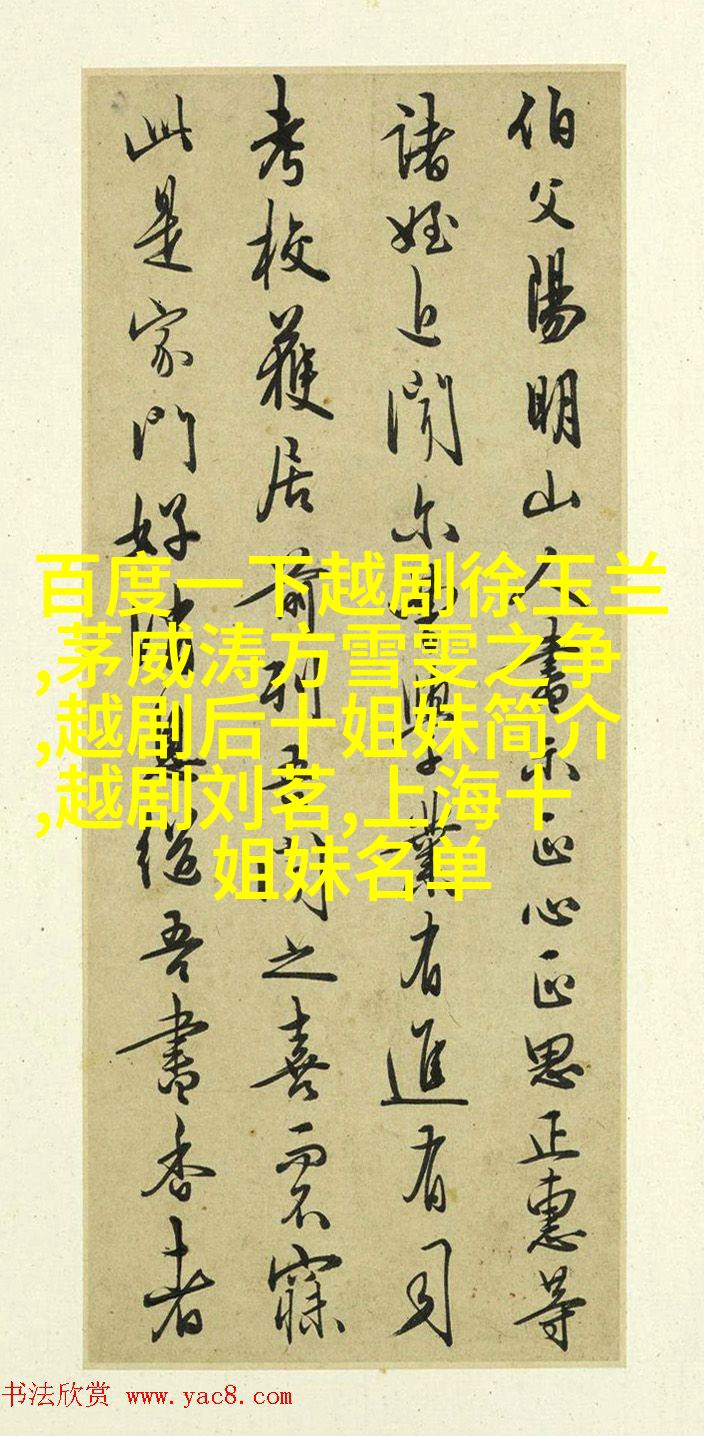 伯父陽明山人書示正心正思正惠等
諸姪近聞尔曹學業有進有司
考校獲居前列吾聞之喜而不寐
此是家門好消息繼吾書香者
百度一下越剧徐玉兰
,茅威涛方雪雯之争
,越剧后十姐妹简介
,越剧刘茗,上海十
姐妹名单
书法欣赏 www.yac8.com